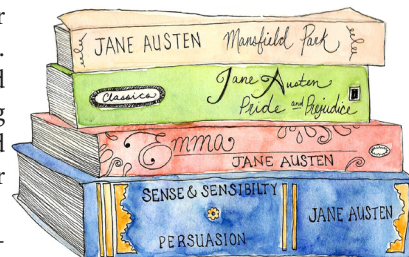 JANE AUSTEN Mansfield Park
Classics
Jane Austen
Pride and Prejudice
Emma
JANE AUSTEN
SENSE & SENSIBILTY
JANE AUSTEN
PERSUASION